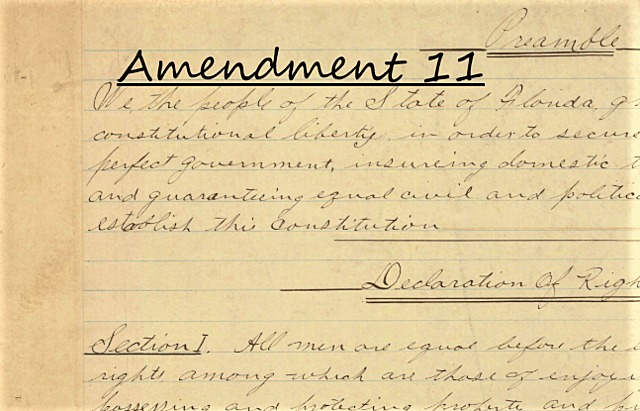 Preamble
Amendment 11
We the people of the State of Florida, g
constitutional liberty, in order to secure
perfect government, insureing domestic t
and guaranteeing equal civil and politica
establish this Constitution
Declaration Of Righ
Section I. All men are equal before the l
rights among which are those of enjoyi
possessing and protecting property, and p